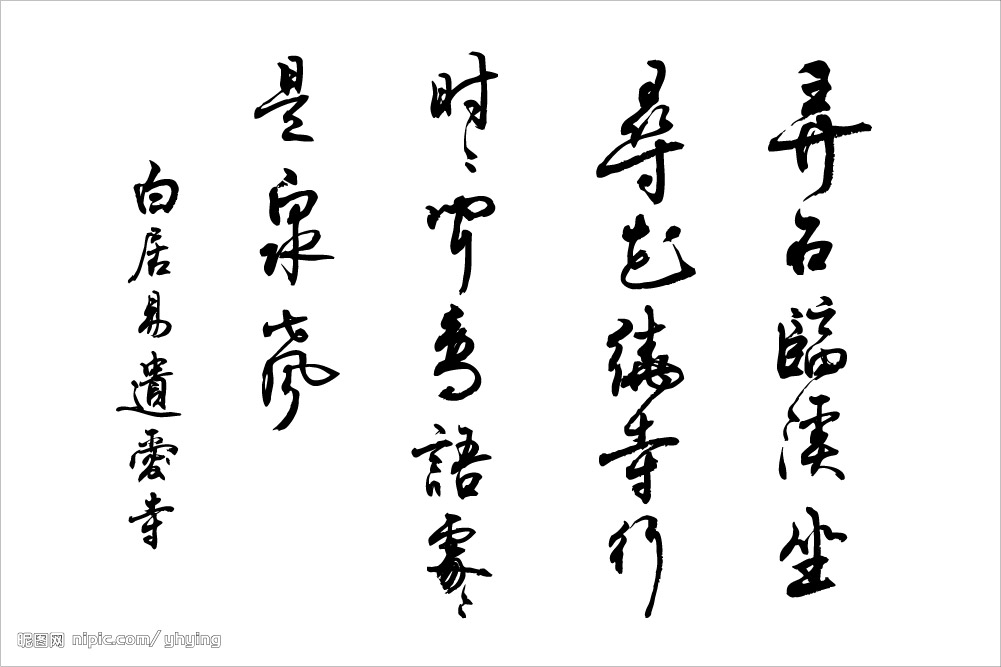 弄石臨溪坐
尋花繞寺行
时〻聞鳥語處〻
是泉聲
白居易遺愛寺
昵图网 nipic.com/yhying